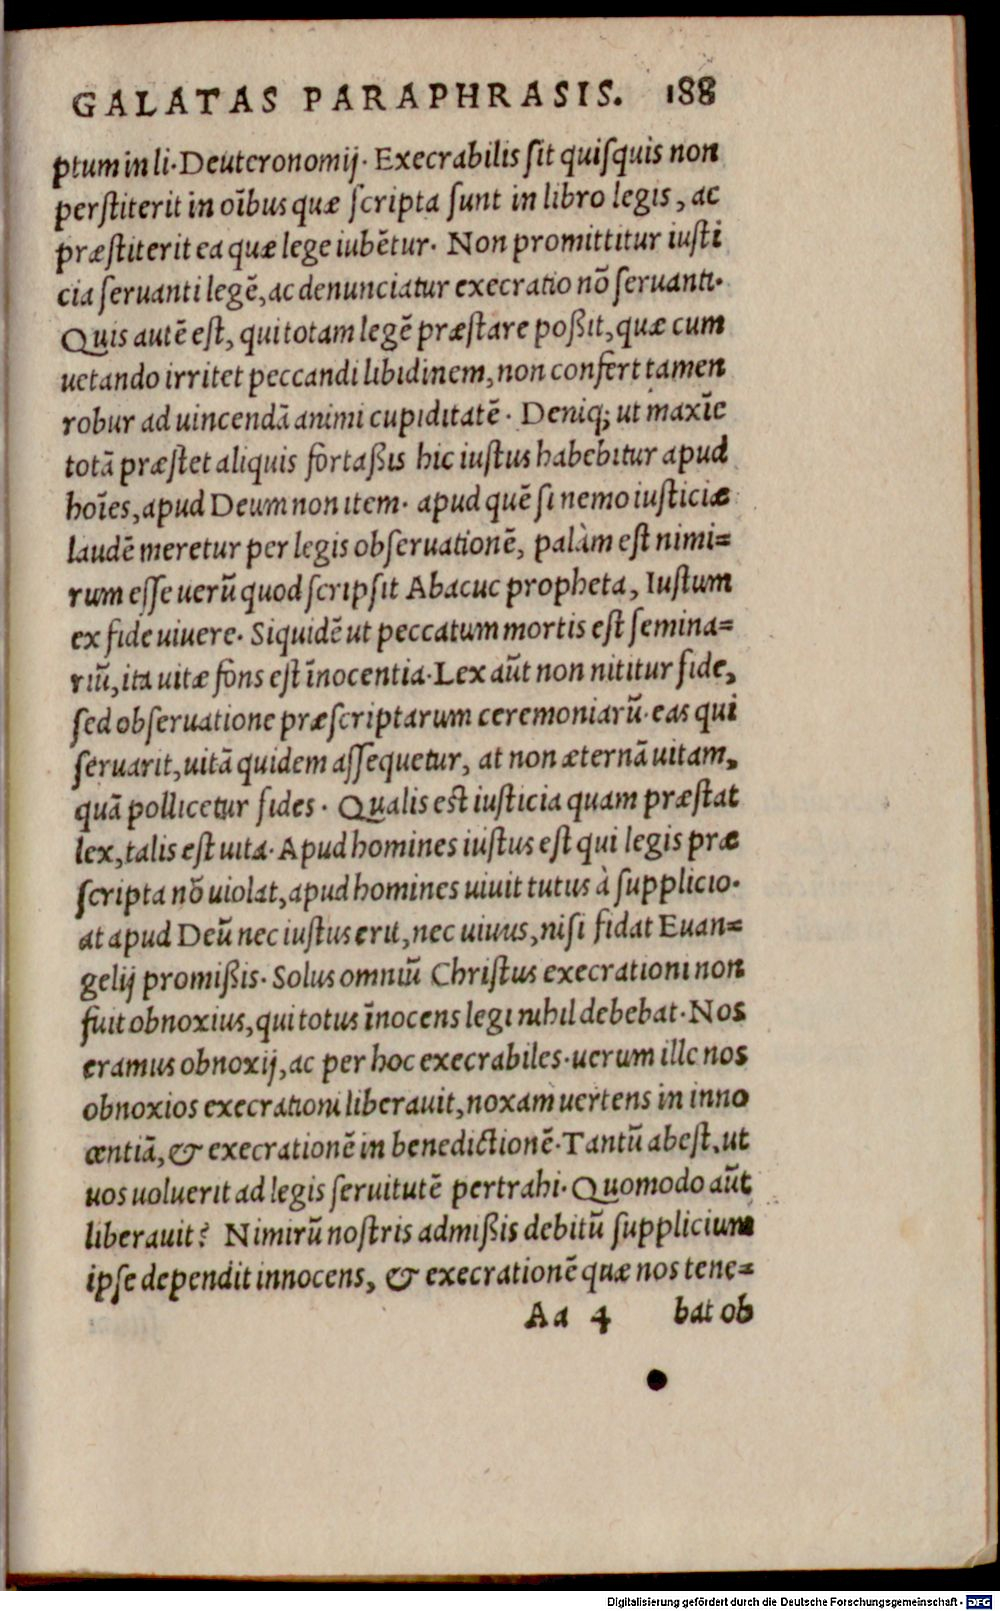 GALATAS PARAPHRASIS. 188
ptum in li. Deuteronomij. Execrabilis sit quisquis non
perstiterit in oı̄bus quæ scripta sunt in libro legis, ac
præstiterit ea quæ lege iubētur. Non promittitur iusti
cia seruanti legē, ac denunciatur execratio nō seruanti.
Quis autē est, qui totam legē præstare poßit, quæ cum
uetando irritet peccandi libidinem, non confert tamen
robur ad uincendā animi cupiditatē. Deniq; ut maxı̄e
totā præstet aliquis fortaßis hic iustus habebitur apud
hoı̄es, apud Deum non item. apud quē si nemo iusticiæ
laudē meretur per legis obseruationē, palàm est nimi=
rum esse uerū quod scripsit Abacuc propheta, Iustum
ex fide uiuere. Siquidē ut peccatum mortis est semina=
riū, ita uitæ fons est ı̄nocentia. Lex aūt non nititur fide,
sed obseruatione præscriptarum ceremoniarū. eas qui
seruarit, uitā quidem assequetur, at non æternā uitam,
quā pollicetur fides. Qualis est iusticia quam præstat
lex, talis est uita. Apud homines iustus est qui legis præ
scripta nō uiolat, apud homines uiuit tutus à supplicio.
at apud Deū nec iustus erit, nec uiuus, nisi fidat Euan=
gelij promißis. Solus omniū Christus execrationi non
fuit obnoxius, qui totus ı̄nocens legi nihil debebat. Nos
eramus obnoxij, ac per hoc execrabiles. uerum ille nos
obnoxios execrationi liberauit, noxam uertens in inno
centiā, & execrationē in benedictionē. Tantū abest, ut
uos uoluerit ad legis seruitutē pertrahi. Quomodo aūt
liberauit? Nimirū nostris admißis debitū supplicium
ipse dependit innocens, & execrationē quæ nos tene=
Aa 4 bat ob
Digitalisierung gefördert durch die Deutsche Forschungsgemeinschaft - DFG